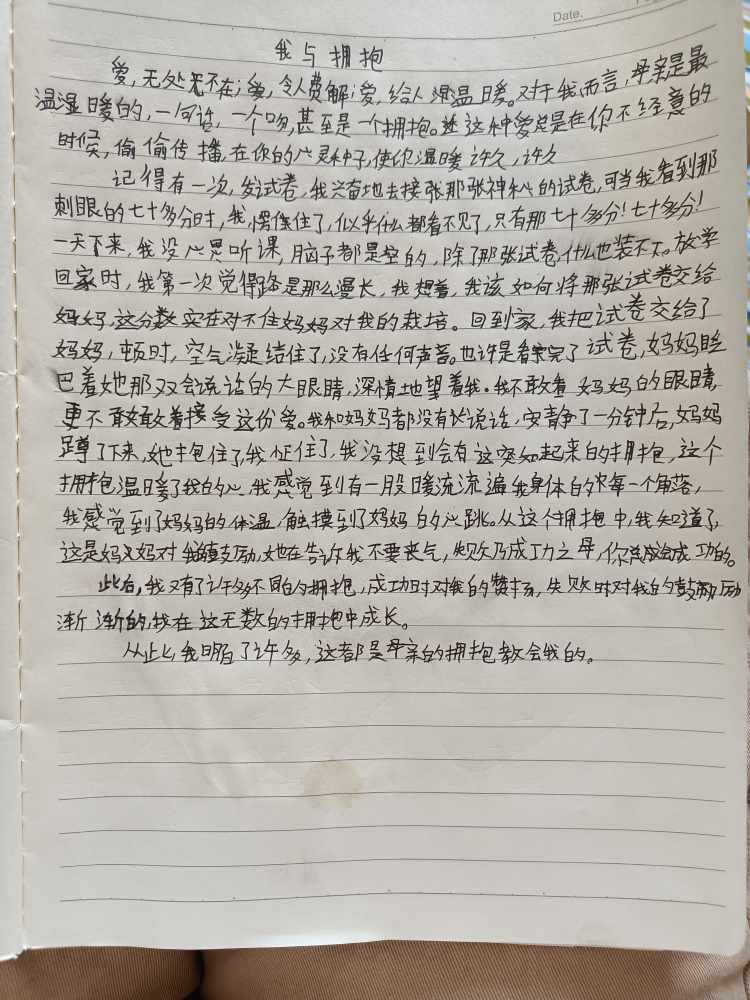 Date.
我与拥抱
爱,无处无不在;爱,令人费解;爱,给人湿温暖。对于我而言,母亲是最
温湿暖的,一句话,一个吻,甚至是一个拥抱。这种爱总是在你不经意的
时候,偷偷传播,在你的心灵种子,使你温暖许久,许久
记得有一次,发试卷,我兴奋地去接张那张神秘的试卷,可当我看到那
刺眼的七十多分时,我愣住了,似乎什么都看不见了,只有那七十多分!七十多分!
一天下来,我没心思听课,脑子都是空的,除了那张试卷,什么也装不下。放学
回家时,我第一次觉得路是那么漫长,我想着,我该如何将那张试卷交给
妈妈,这分数实在对不住妈妈对我的栽培。回到家,我把试卷交给了
妈妈,顿时,空气凝结住了,没有任何声音。也许是看完了试卷,妈妈眨
巴着她那双会说话的大眼睛,深情地望着我。我不敢看妈妈的眼睛,
更不敢敢着接受这份爱。我和妈妈都没有说话,安静了一分钟后,妈妈
蹲了下来,她抱住了我,我怔住了,我没想到会有这突如起来的拥抱,这个
拥抱温暖了我的心,我感觉到有一股暖流流遍我身体的每一个角落,
我感觉到了妈妈的体温,触摸到了妈妈的心跳。从这个拥抱中,我知道了,
这是妈妈对我鼓励,她在告诉我不要丧气,失败乃成功之母,你总会成功的。
此后,我又有了许多不同的拥抱,成功时对我的赞扬,失败时对我的鼓励
渐渐的,我在这无数的拥抱中成长。
从此,我明白了许多,这都是母亲的拥抱教会我的。